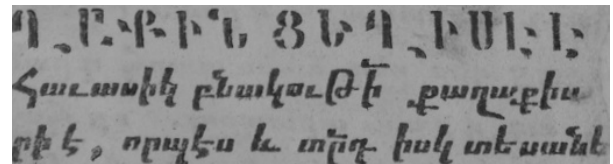 ՂԱՔԻՆ ՑԵՂԻՍԷԷ
Հաւասիկ բնակութի քաղաքիս
րի է, որպէս և տրդ իսկ տեսանե